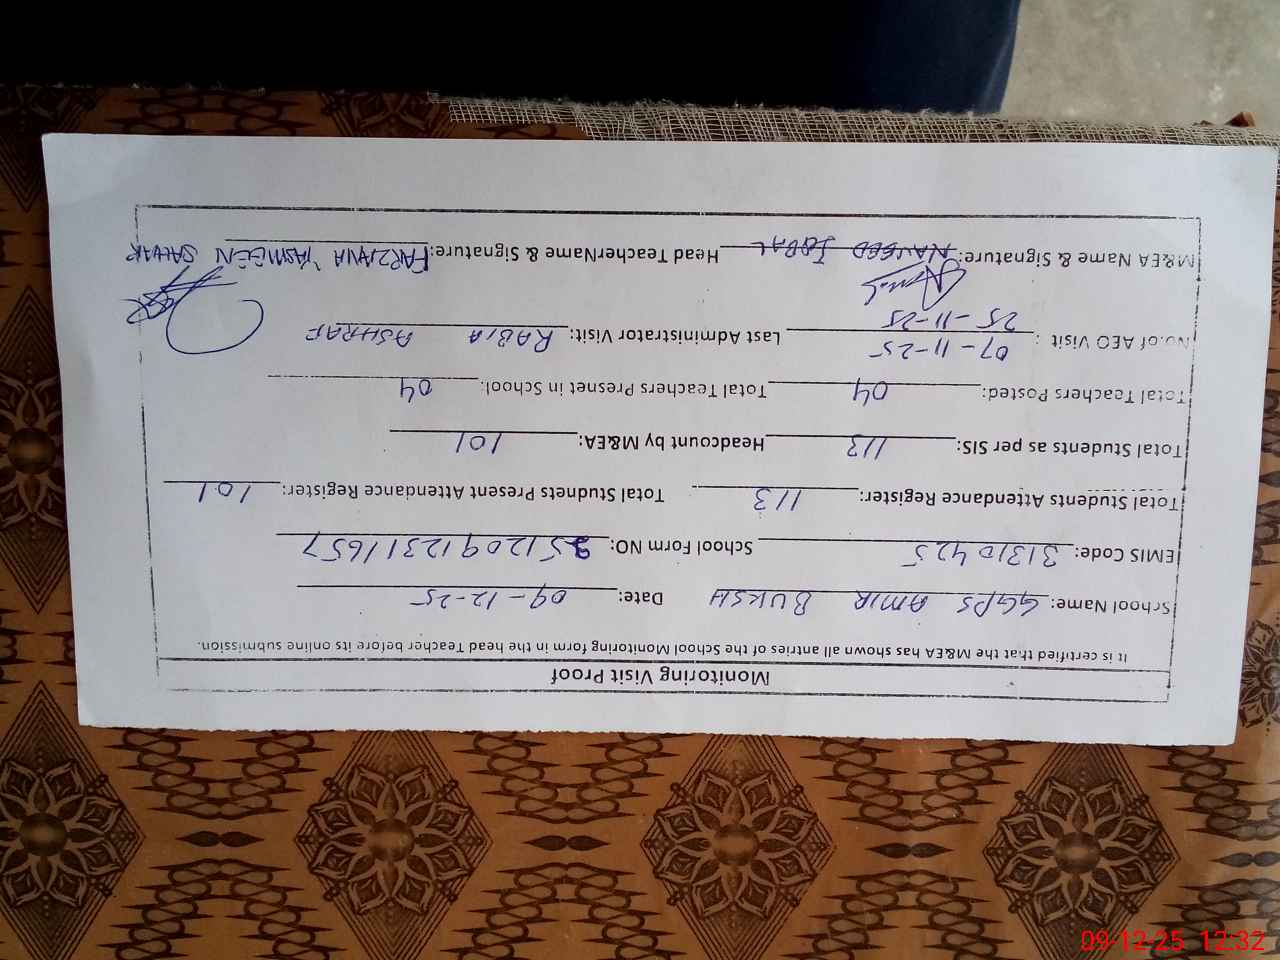 Monitoring Visit Proof
It is certified that the M&EA has shown all antries of the School Monitoring form in the head Teacher before its online submission.
School Name: GGPS AMIR BUKSH Date: 09-12-25
EMIS Code: 31310425 School Form NO: 25120912311657
Total Students Attendance Register: 113 Total Studnets Present Attendance Register: 101
Total Students as per SIS: 113 Headcount by M&EA: 101
Total Teachers Posted: 04 Total Teachers Presnet in School: 04
07-11-25
No.of AEO Visit : Last Administrator Visit: RABIA ASHRAF
25-11-25
M&EA Name & Signature: NAVEED IQBAL Head TeacherName & Signature: FARZANA YASMEEN SAHAR
09-12-25 12:32